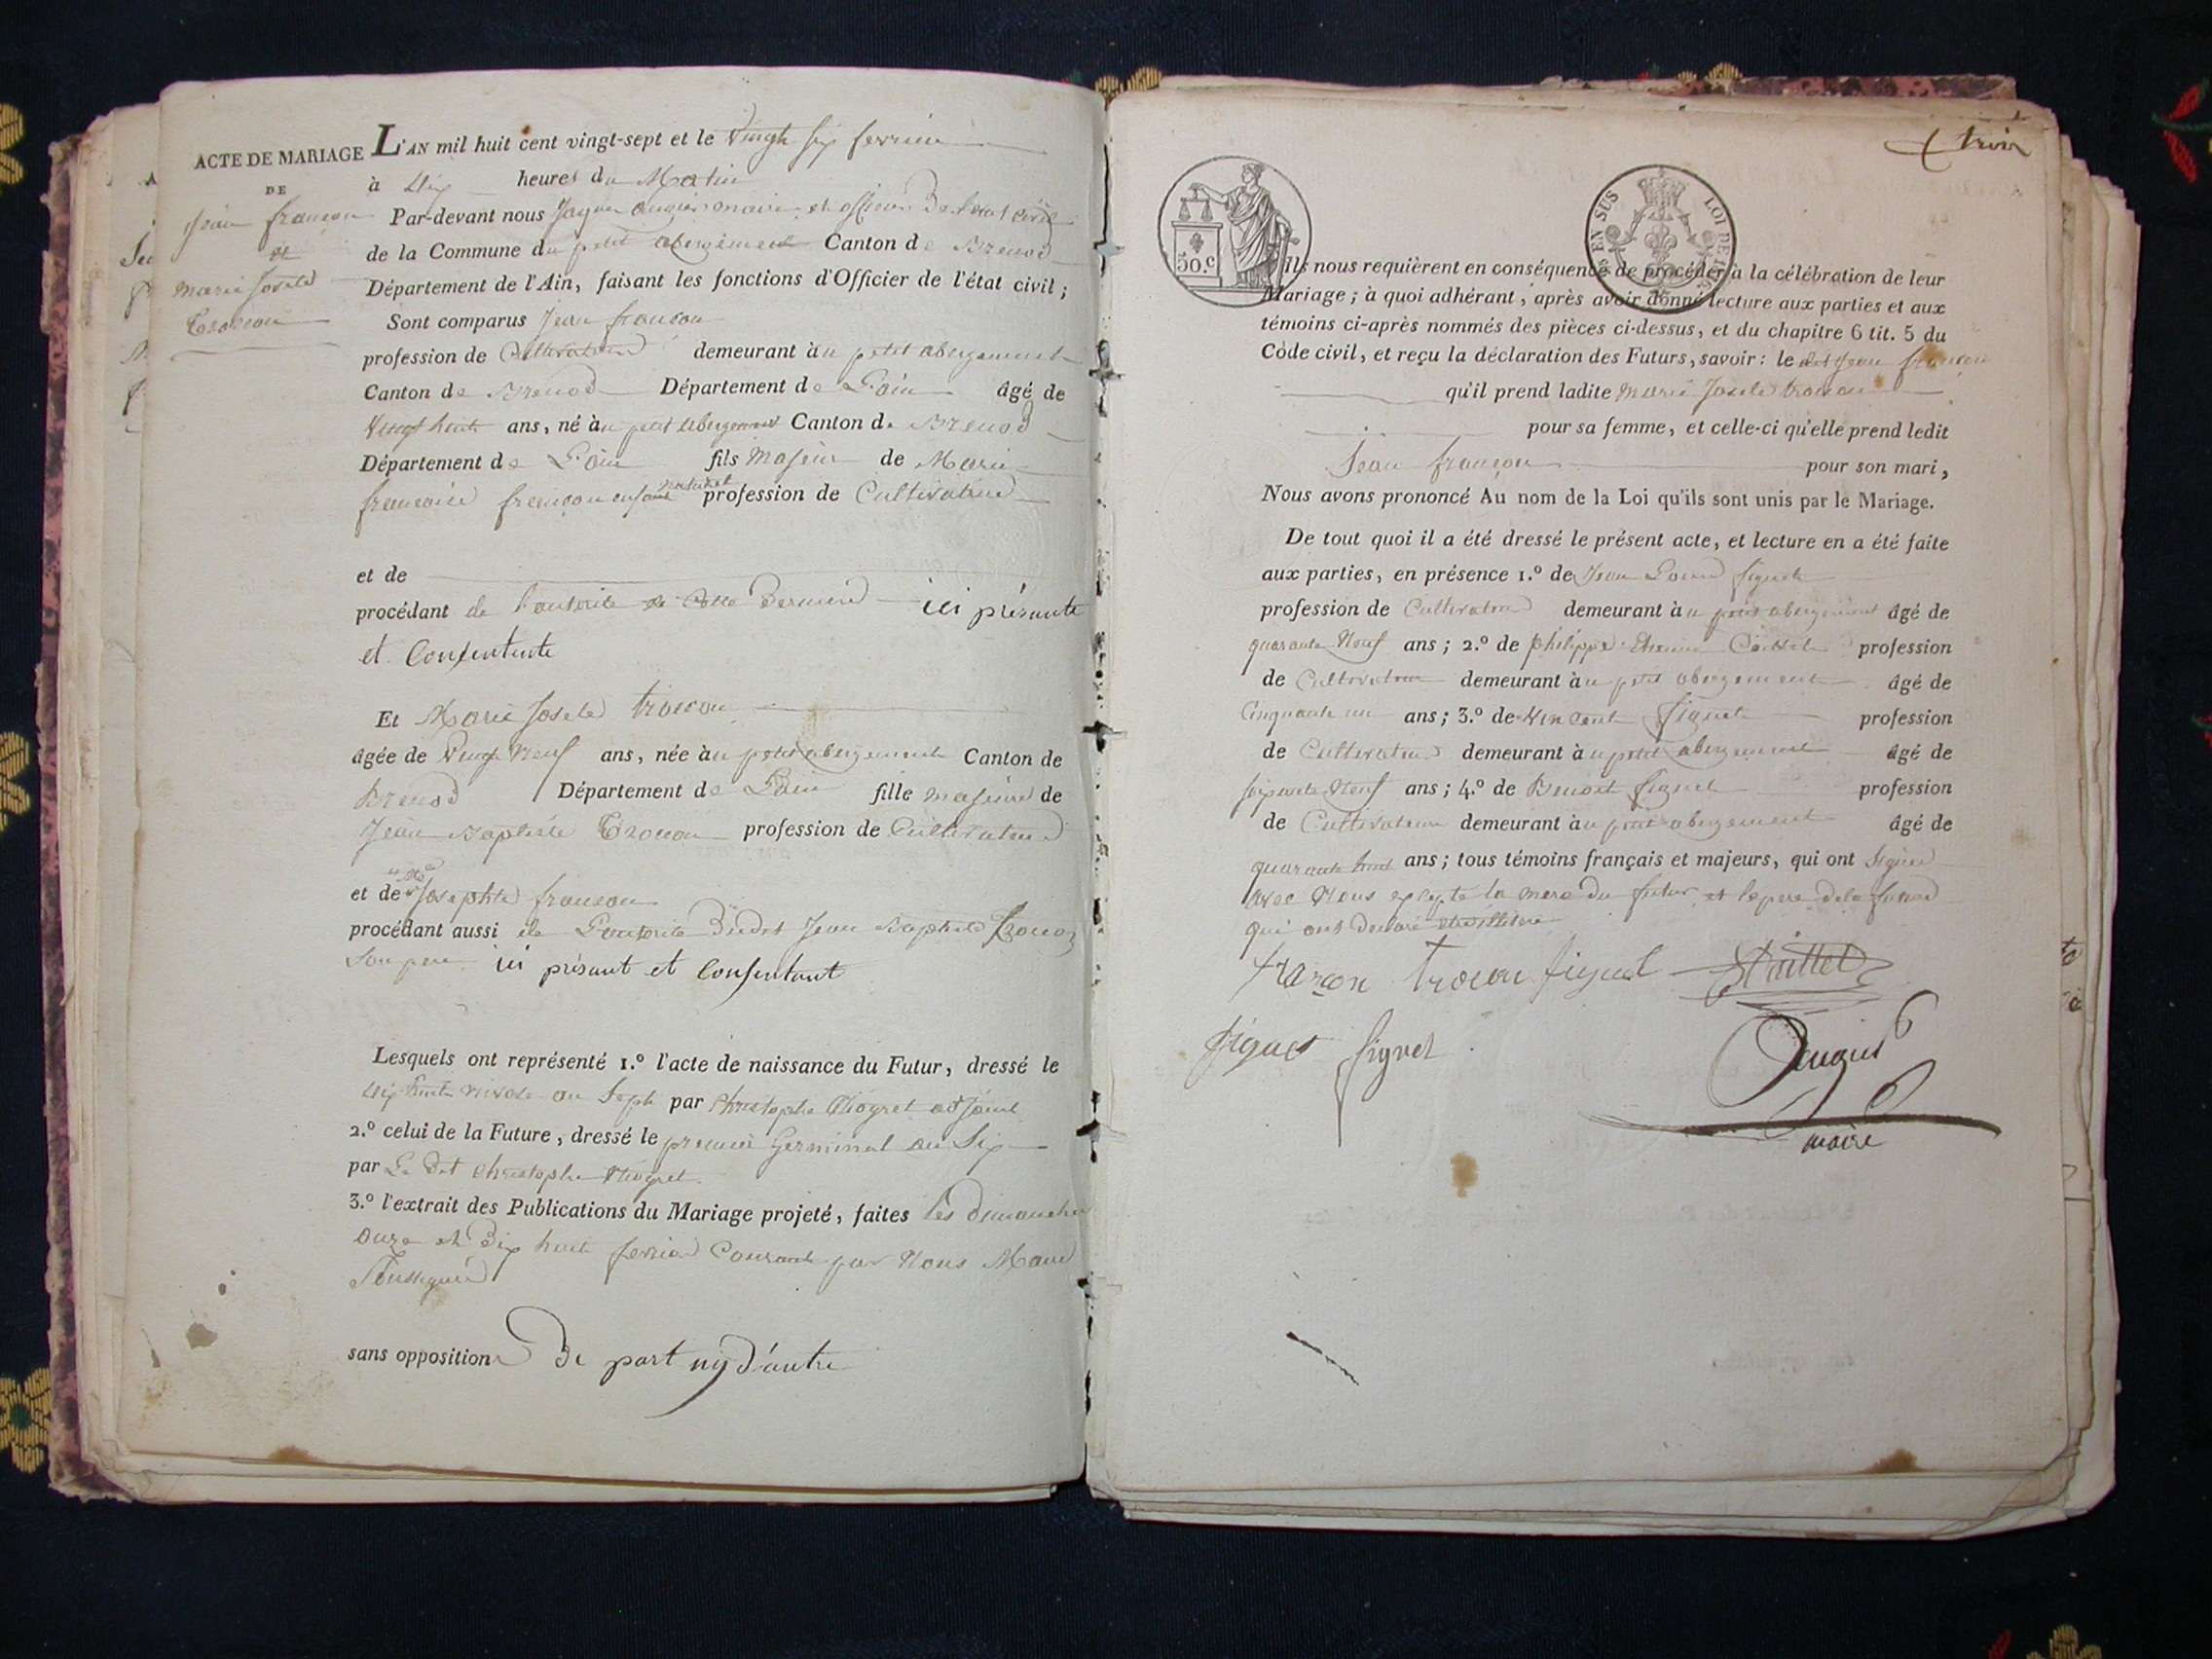 ACTE DE MARIAGE
DE
Jean françon
et
Marie Josete
Trocon
L'AN mil huit cent vingt-sept et le vingt six ferrier
à dix heures du Matin
Par-devant nous maire et officier de l'etat civil
de la Commune du petit abergement Canton de Brenod
Département de l'Ain, faisant les fonctions d'Officier de l'état civil ;
Sont comparus Jean françon
profession de Cultivateur demeurant àu petit abergement
Canton de Brenod Département de L'ain âgé de
Vingt huit ans, né àu petit abergement Canton de Brenod
Département de L'ain fils Majeur de Marie
francoise françon enfant naturel profession de Cultivateur
et de
procédant de l'autorité de cette derniere ici présente
et Consentente
Et Marie Josete trocon
âgée de Vingt Neuf ans, née àu petit abergement Canton de
Brenod Département de L'ain fille majeure de
Jean Baptiste Trocon profession de Cultivateur
et de Josephte françon
procédant aussi de L'autorité dudit Jean Baptiste Trocon
Son pere ici présant et Consentant
Lesquels ont représenté 1.º l'acte de naissance du Futur, dressé le
dix huit nivose an Sept par Christophe adjoint
2.º celui de la Future, dressé le premier Germinal an Six
par Le dit Christophe
3.º l'extrait des Publications du Mariage projeté, faites les dimanches
onze et dix huit ferrier Courant par Nous Maire
Soussigné
sans opposition de part ny d'autre
trois
50.C
EN SUS
LOI DE
Ils nous requièrent en conséquence de procéder à la célébration de leur
Mariage ; à quoi adhérant, après avoir donné lecture aux parties et aux
témoins ci-après nommés des pièces ci-dessus, et du chapitre 6 tit. 5 du
Code civil, et reçu la déclaration des Futurs, savoir : le dit Jean françon
qu'il prend ladite Marie Josete trocon
pour sa femme, et celle-ci qu'elle prend ledit
Jean françon pour son mari,
Nous avons prononcé Au nom de la Loi qu'ils sont unis par le Mariage.
De tout quoi il a été dressé le présent acte, et lecture en a été faite
aux parties, en présence 1.º de Jean Louis figuet
profession de Cultivateur demeurant àu petit abergement âgé de
quarante Neuf ans ; 2.º de philippe profession
de Cultivateur demeurant àu petit abergement âgé de
Cinquante un ans ; 3.º de Vincent figuet profession
de Cultivateur demeurant àu petit abergement âgé de
soixante Neuf ans ; 4.º de Benoit figuet profession
de Cultivateur demeurant àu petit abergement âgé de
quarante huit ans ; tous témoins français et majeurs, qui ont Signé
avec Nous exepté la mere du futur et le pere de la future
qui ont declaré
françon trocon figuet
figuet figuet
maire